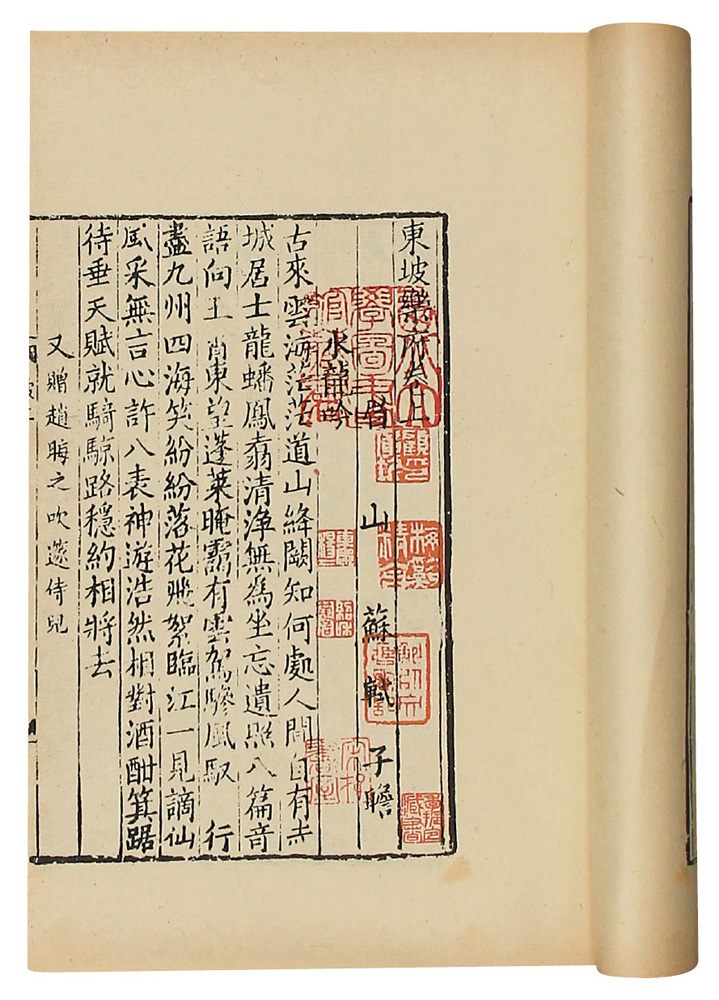 東坡樂府卷上
眉山 蘇軾 子瞻
水龍吟
古來雲海茫茫道山絳闕知何處人間自有赤
城居士龍蟠鳳翥清淨無為坐忘遺照八篇音
語向玉霄東望蓬萊晻靄有雲駕驂風馭 行
盡九州四海笑紛紛落花飛絮臨江一見謫仙
風采無言心許八表神游浩然相對酒酣箕踞
待垂天賦就騎鯨路穩約相將去
又贈趙晦之吹篴侍兒